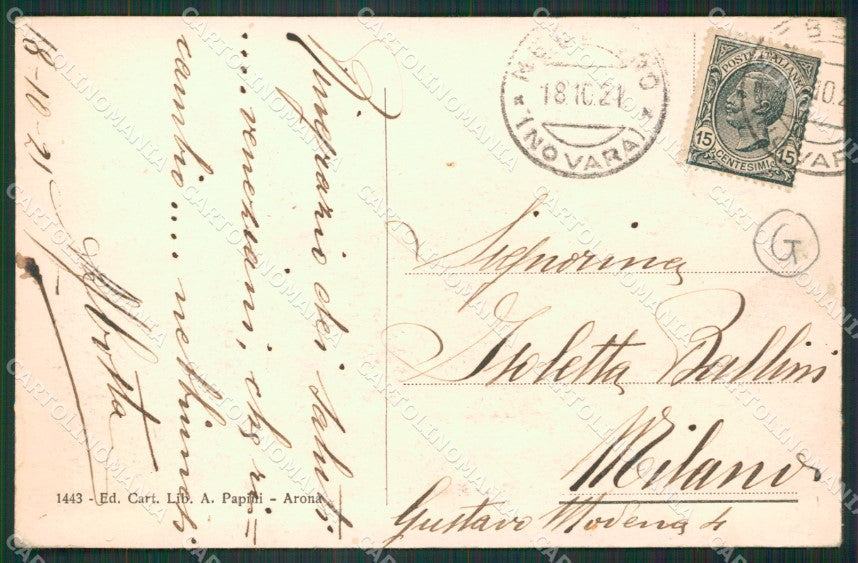 18-10-21
Ringrazio dei saluti
.... veneziani, che ri=
cambio....
Alberta
1443 - Ed. Cart. Lib. A. Papini - Arona
18.10.21
(NOVARA)
POSTE ITALIANE
15 CENTESIMI 15
G
Signorina
Isoletta Ballini
Milano
Gustavo Modena 4
CARTOLINOMANIA